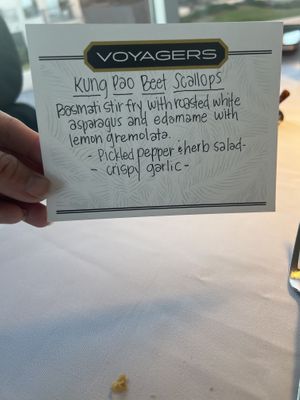 VOYAGERS
Kung Pao Beet Scallops
Basmati stir fry with roasted white
asparagus and edamame with
lemon gremolata.
- Pickled pepper & herb salad-
- crispy garlic -